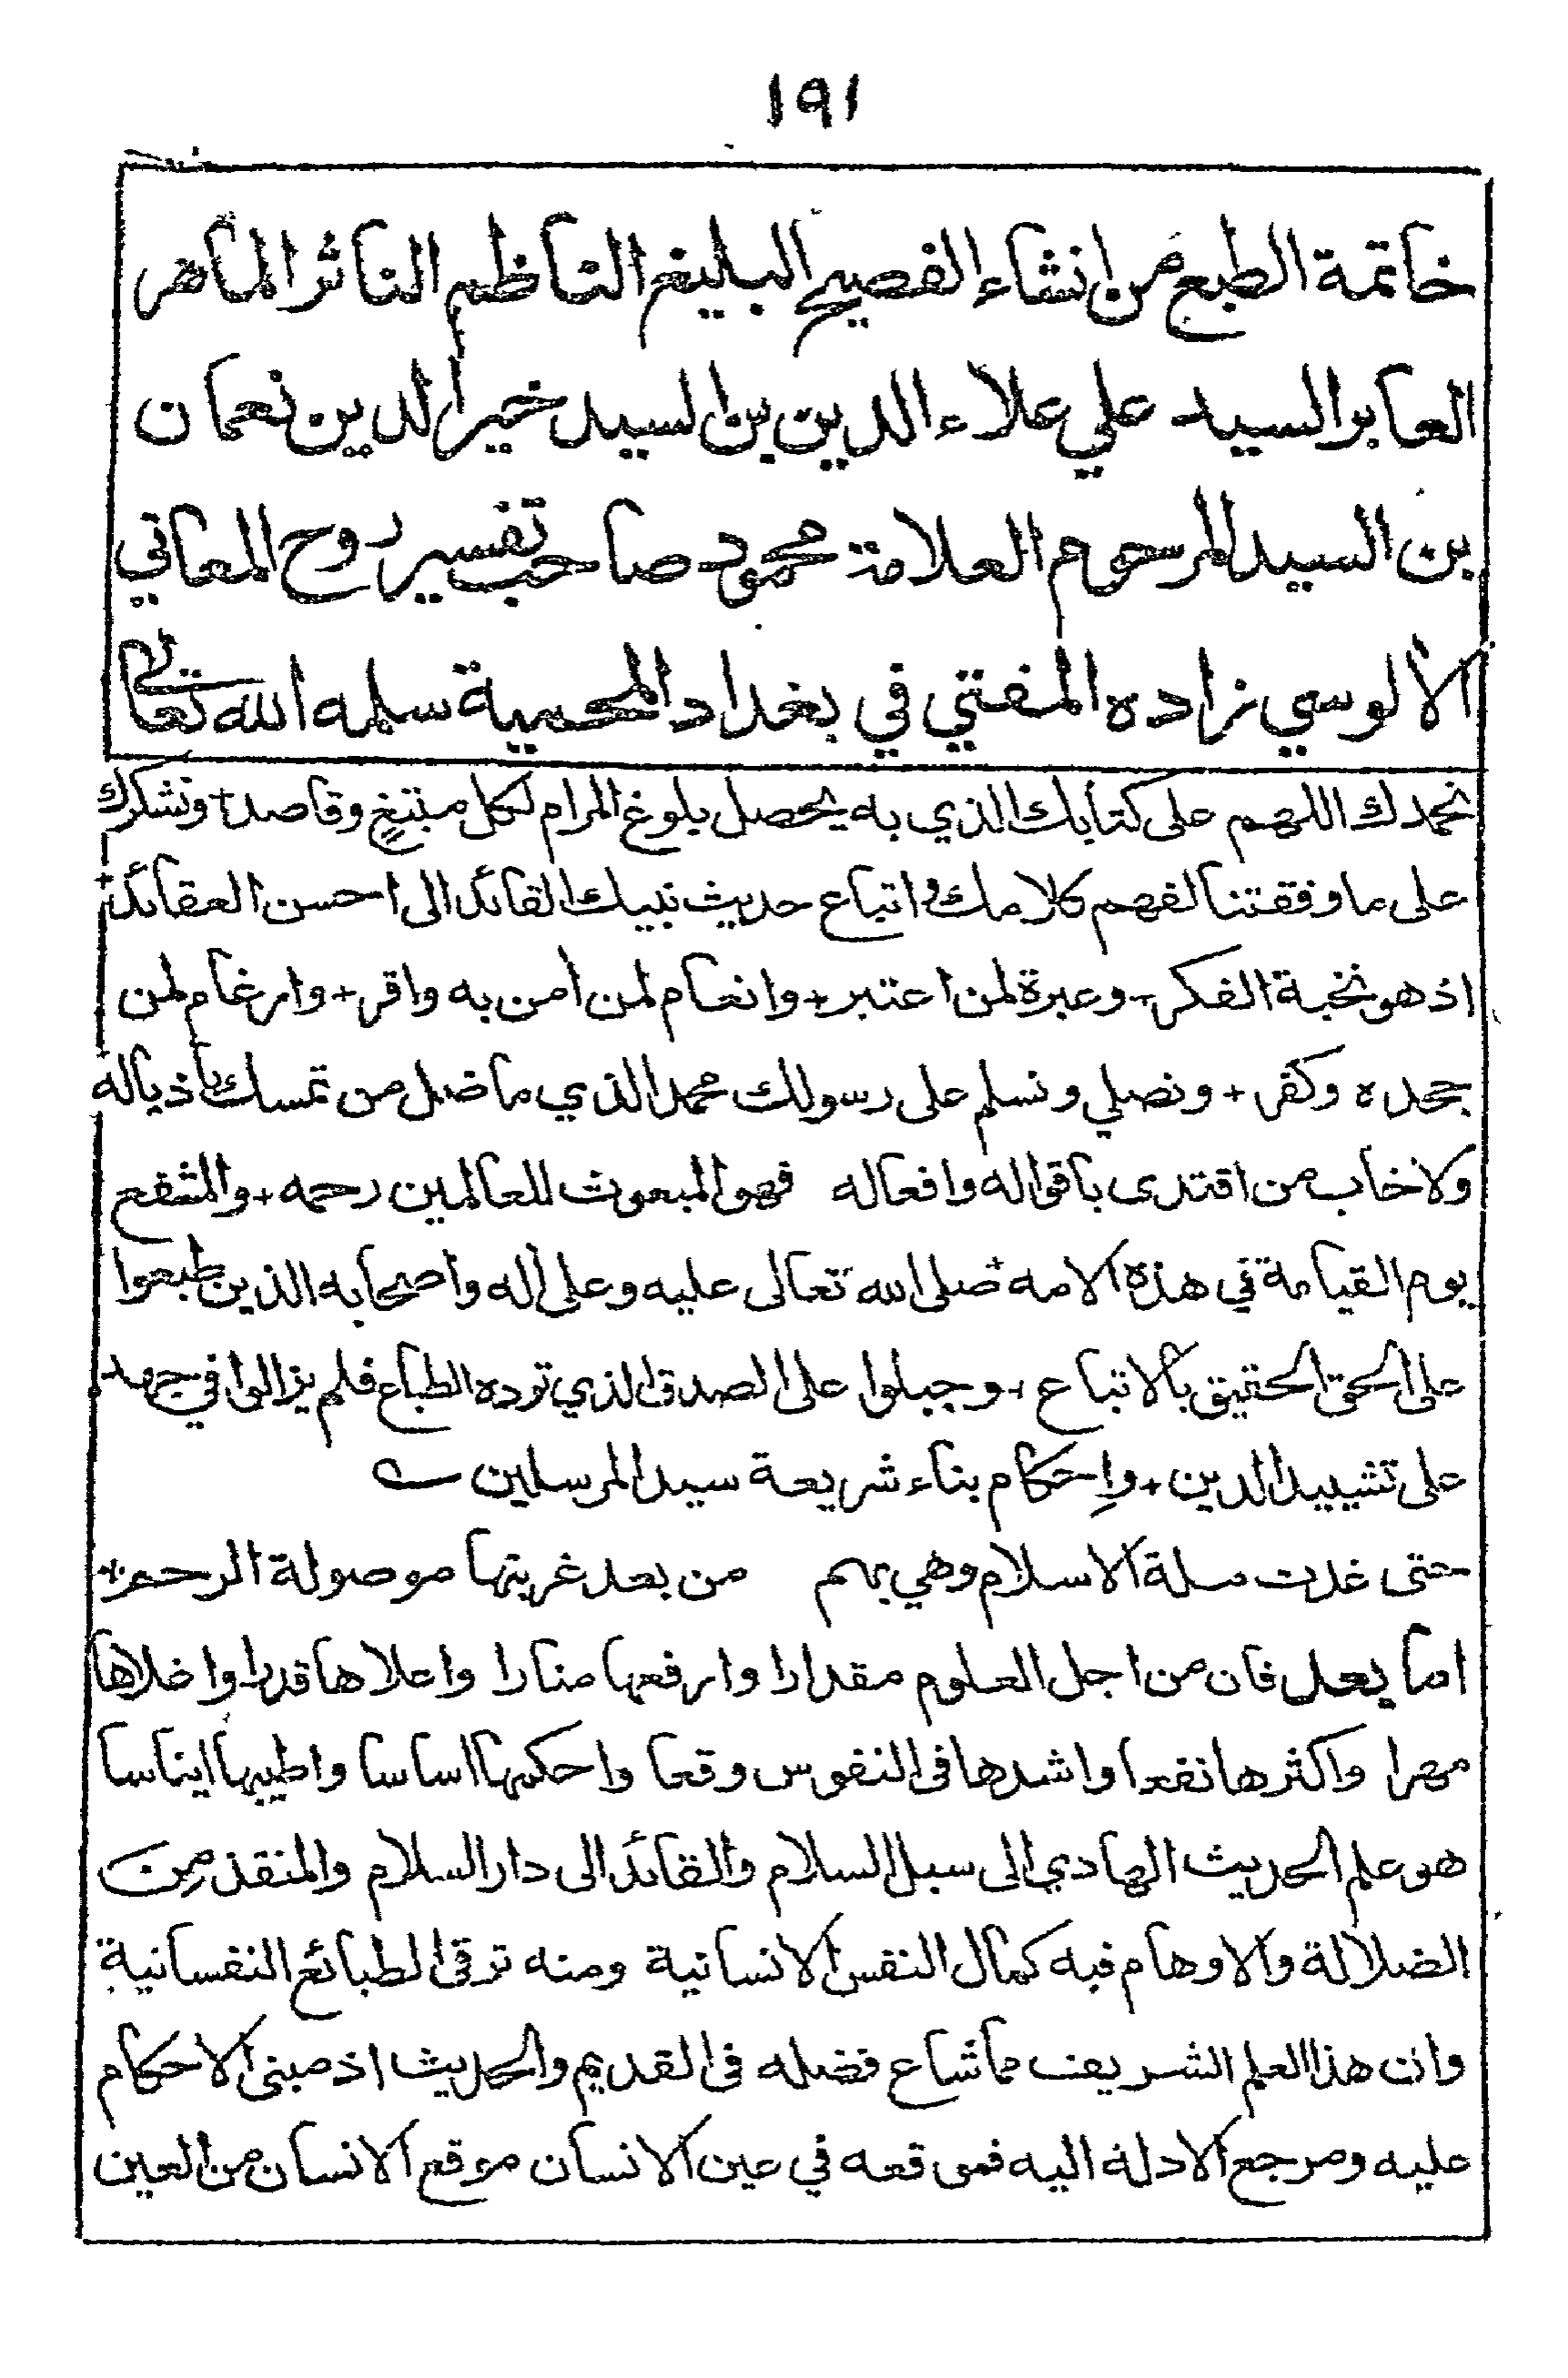 ١٩١
خاتمة الطبع من انشاء الفصيح البليغ الناظم الناثر الماهر
العابر السيد علي علاء الدين بن السيد خير الدين نعمان
بن السيد المرحوم العلامة محمود صاحب تفسير روح المعاني
الالوسي زاده المفتي في بغداد المحمية سلمه الله تعالى
نحمدك اللهم على كتابك الذي به يحصل بلوغ المرام لكل مبتغٍ وقاصد + ونشكرك
على ما وفقتنا لفهم كلامك واتباع حديث نبيك القائد الى احسن العقائد +
اذ هو نخبة الفكر + وعبرة لمن اعتبر + وانعام لمن أمن به واقر + وارغام لمن
جحده وكفر + ونصلي ونسلم على رسولك محمد الذي ما ضل من تمسك باذياله
ولا خاب من اقتدى باقواله وافعاله فهو المبعوث للعالمين رحمه + والمشفع
يوم القيامة في هذه الامه صلى الله تعالى عليه وعلى أله واصحابه الذين طبعوا
على الحق الحقيق بالاتباع + وجبلوا على الصدق الذي توده الطباع فلم يزالوا في جهد
على تشييد الدين + وإحكام بناء شريعة سيد المرسلين
حتى غدت ملة الاسلام وهي بهم من بعد غربتها موصولة الرحم +
اما بعد فان من اجل العلوم مقدارا وارفعها منارا واعلاها قدرا واغلاها
مهرا واكثرها نفعا واشدها فى النفوس وقعا واحكمها اساسا واطيبها ايناسا
هو علم الحديث الهادي الى سبل السلام والقائد الى دار السلام والمنقذ مِن
الضلالة والاوهام فبه كمال النفس الانسانية ومنه ترقى الطبائع النفسانية
وان هذا العلم الشريف مما شاع فضله فى القديم والحديث اذ مبنى الاحكام
عليه ومرجع الادلة اليه فموقعه في عين الانسان موقع الانسان من العين